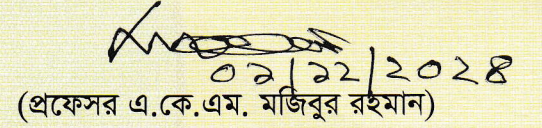 ০১/১২/২০২৪
(প্রফেসর এ.কে.এম. মজিবুর রহমান)